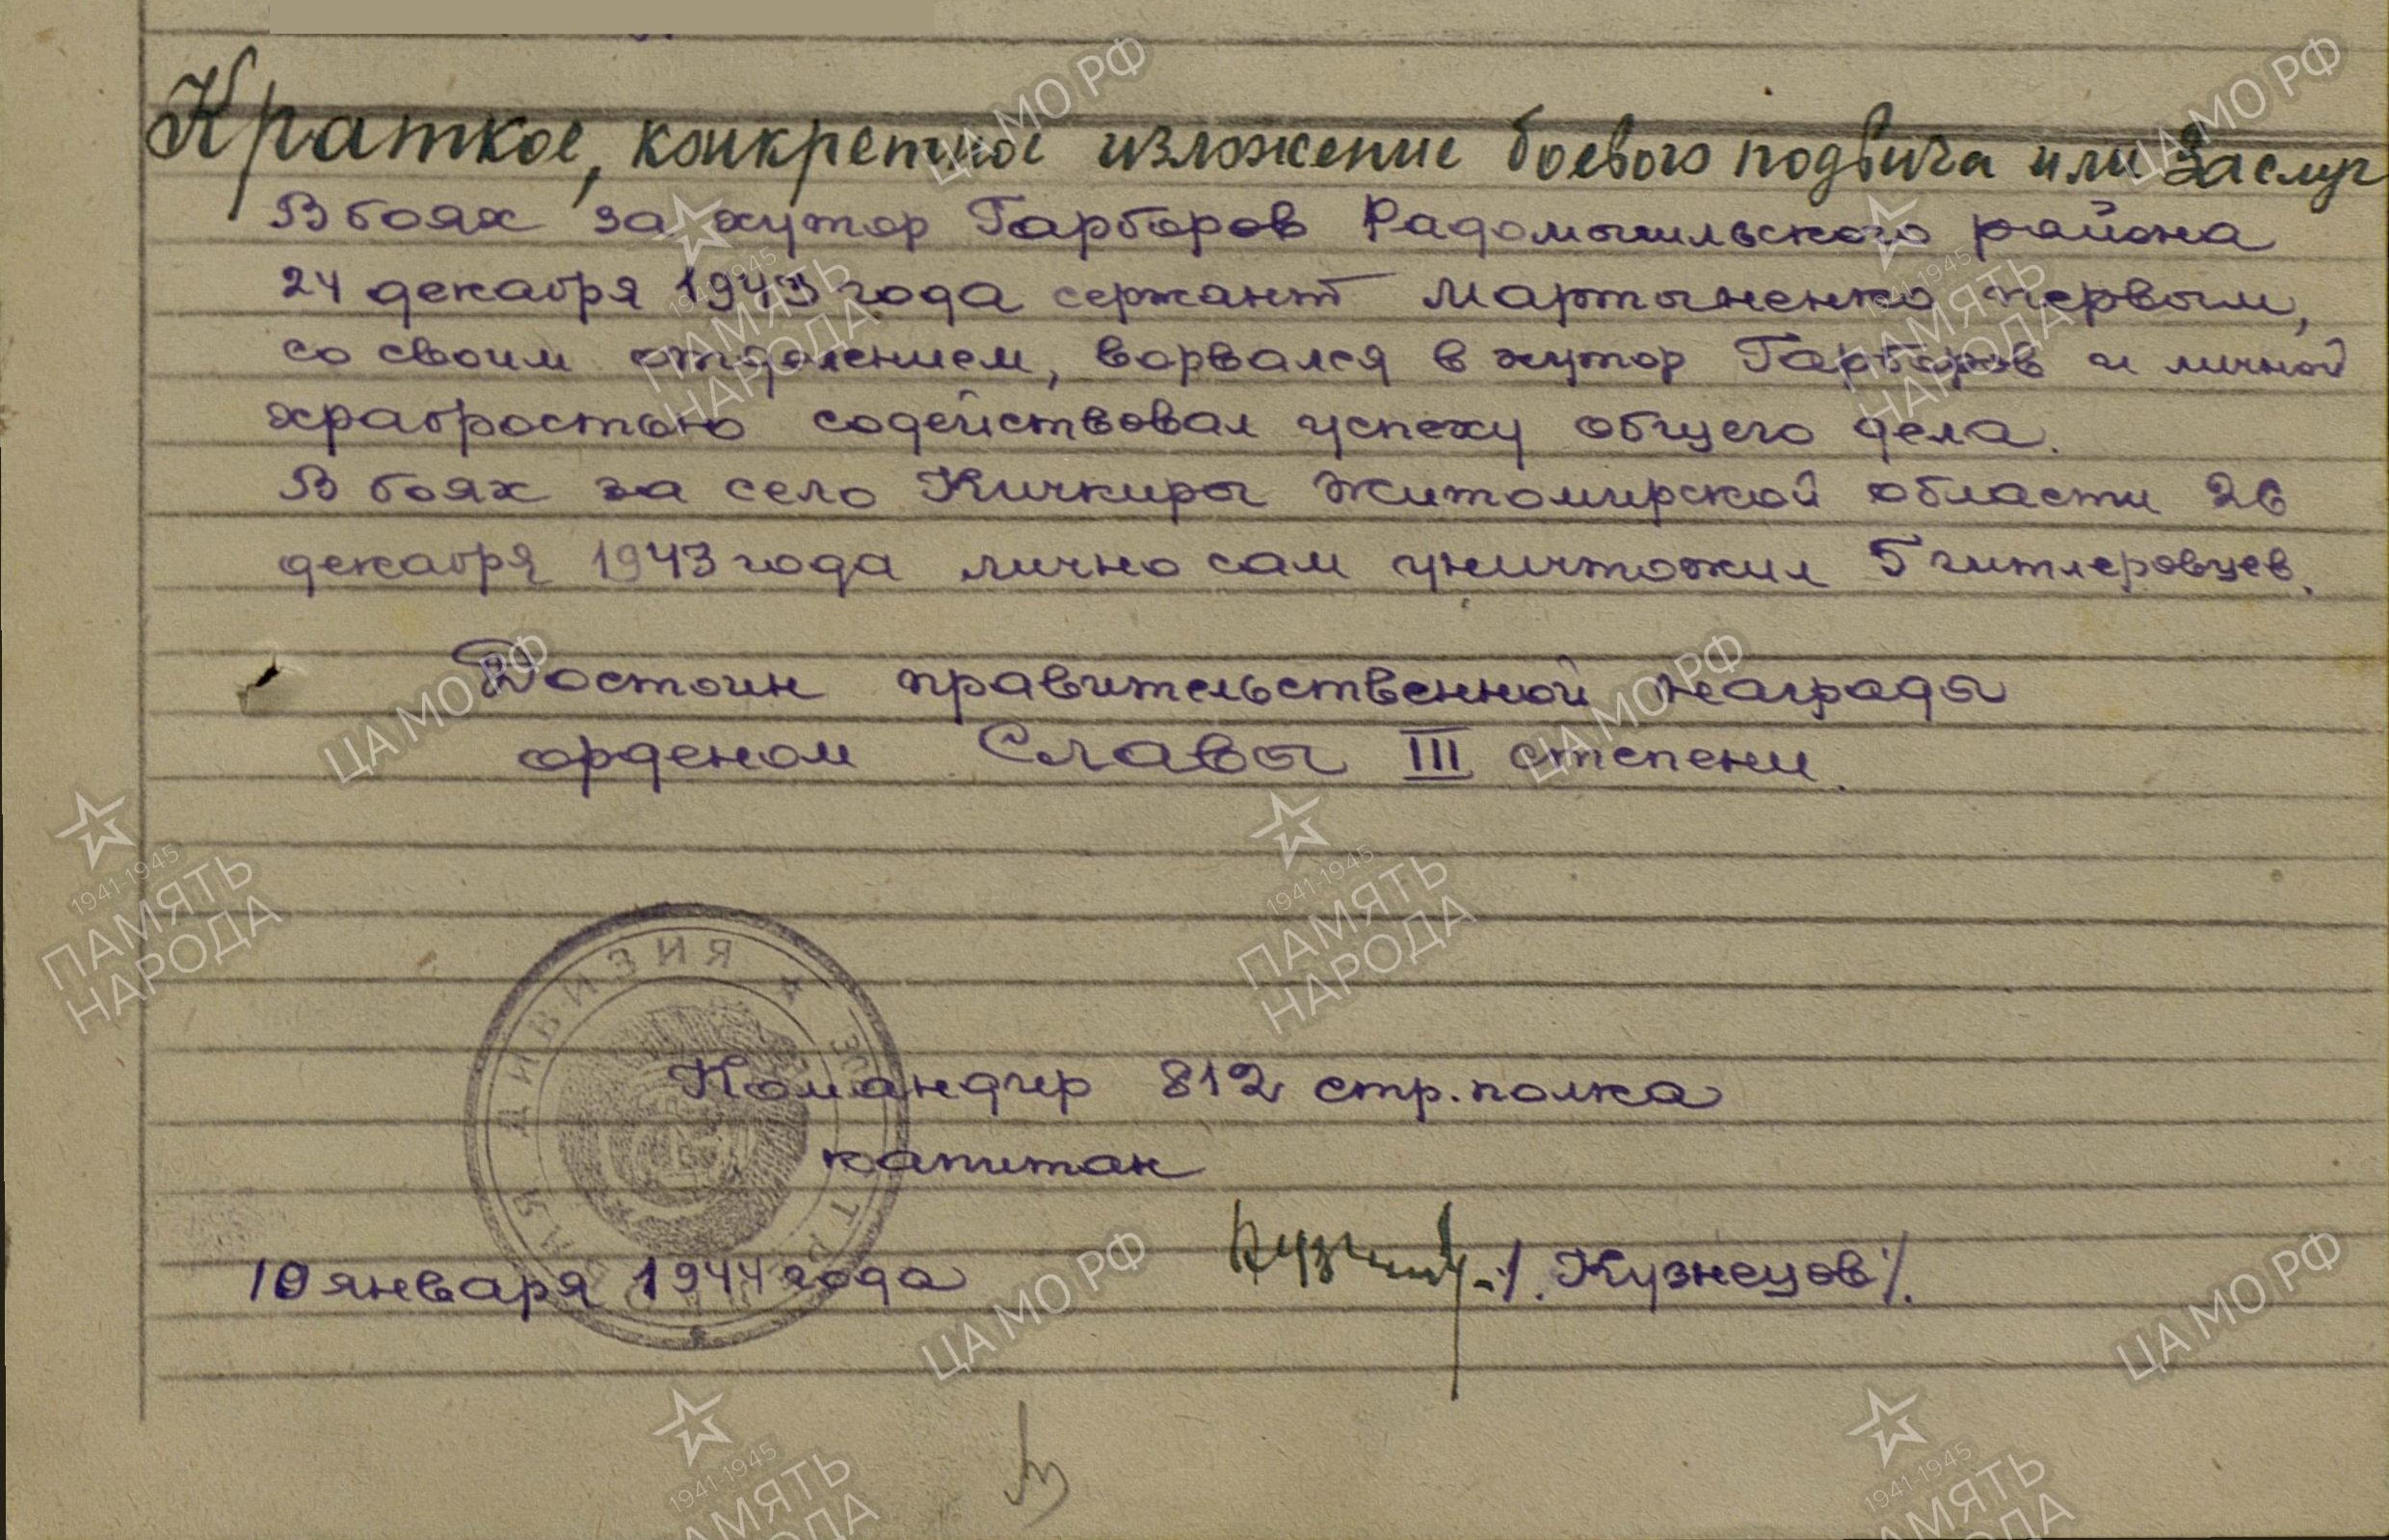 Краткое, конкретное изложение боевого подвига или заслуг
В боях за хутор Гарборов Радомышльского района
24 декабря 1943 года сержант Мартыненко первым,
со своим отделением, ворвался в хутор Гарборов и личной
храбростью содействовал успеху общего дела.
В боях за село Кичкиры Житомирской области 26
декабря 1943 года лично сам уничтожил 5 гитлеровцев.
Достоин правительственной награды
орденом Славы III степени.
ДИВИЗИЯ
Командир 812 стр. полка
капитан
/. Кузнецов /.
10 января 1944 года
ЦА МО РФ
1941-1945
ПАМЯТЬ
НАРОДА